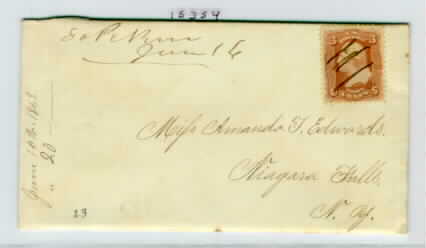 15354
June 16
Miss Amanda T. Edwards.
Niagara Falls,
N. Y.
June 16th 1863
" 20
23
3 3